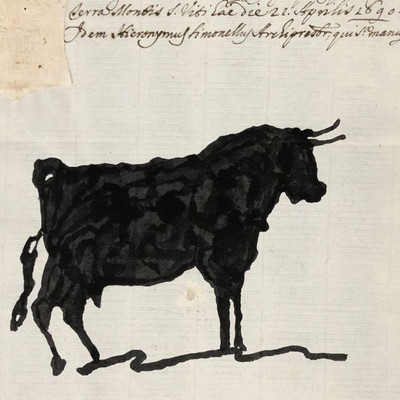 terra Montis S. Viti hac die 22. Aprilis 1690.
Idem Hieronymus Simonellus Archipresbr. qui sa. manu